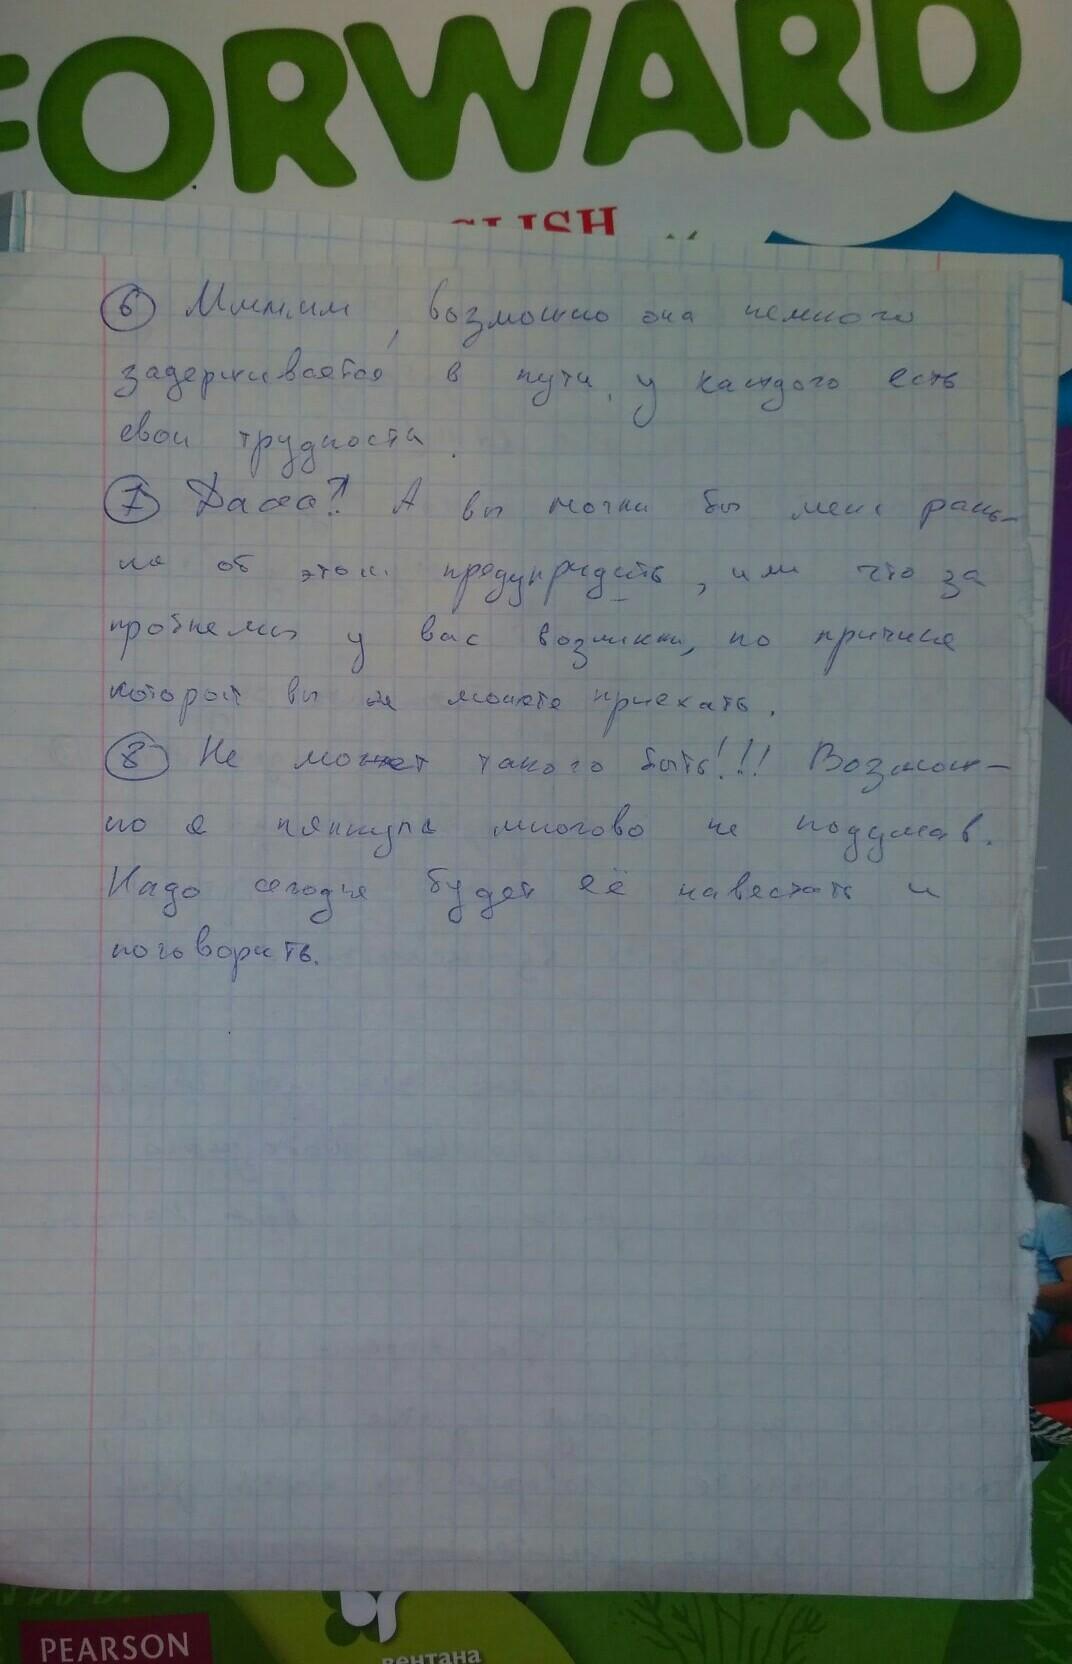 FORWARD
GLISH
6 Ммм.им, возможно она немного
задерживается в пути, у каждого есть
свои трудности.
7 Дааа?! А вы могли бы меня рань-
ше об этом предупридить, или что за
проблемы у вас возникли, по причине
которой вы не можете приехать.
8 Не может такого быть!!! Возмож-
но я ляпнула многово не подумав.
Надо сегодня будет её навестить и
поговорить.
PEARSON
вентана